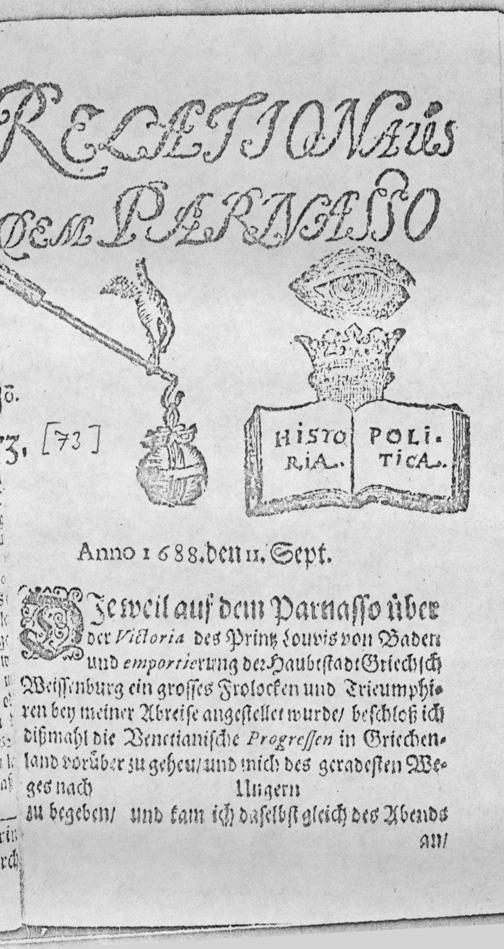 RELATION Aus
DEM PARNASSO
HISTO
RIA.
POLI-
TICA.
[73]
Anno 1688. den 11. Sept.
DJeweil auf dem Parnasso über
der Victoria des Printz Louvis von Baden
und emportierung der Haubtstadt Griechisch
Weissenburg ein grosses Frolocken und Trieumphi-
ren bey meiner Abreise angestellet wurde/ beschloß ich
dißmahl die Venetianische Progressen in Griechen-
land vorüber zu gehen/ und mich des geradesten We-
ges nach Ungern
zu begeben/ und kam ich daselbst gleich des Abends
an/